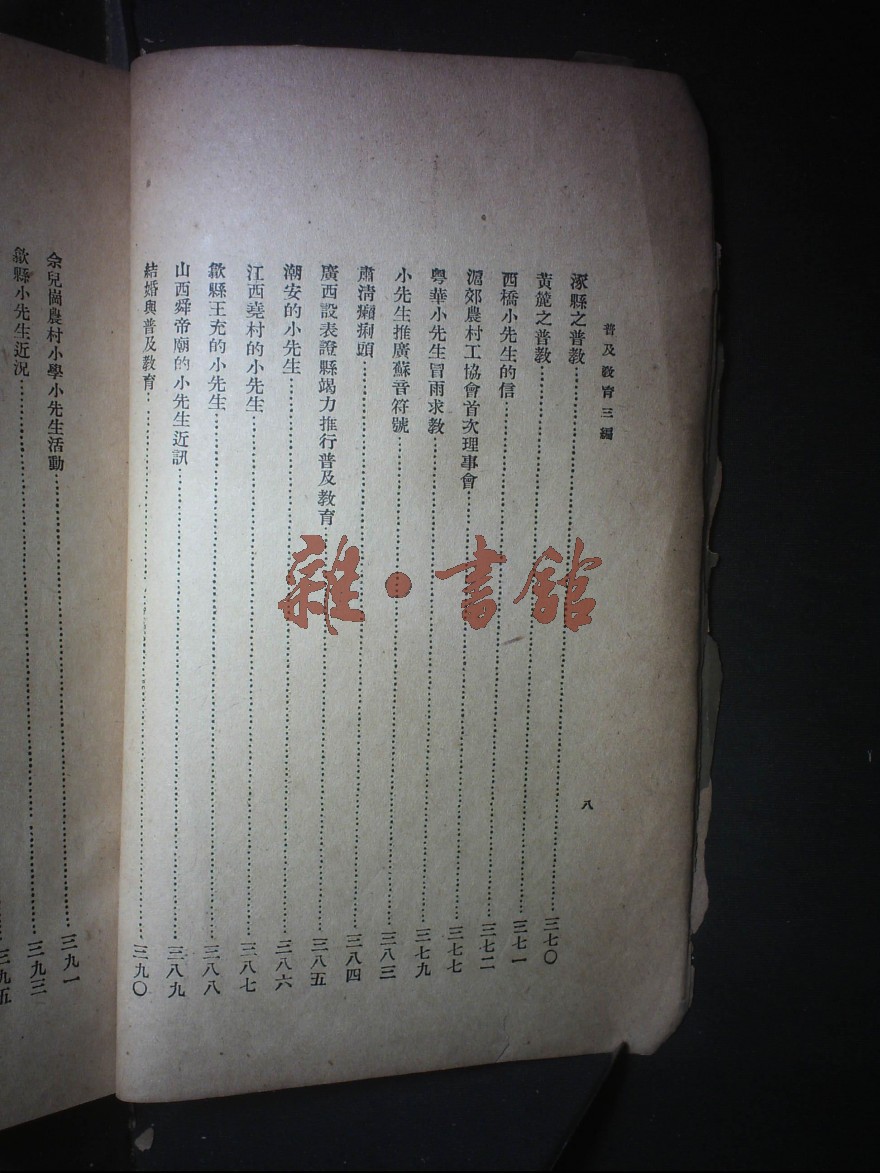 普及教育三編
八
涿縣之普教⋯⋯三七〇
黃麓之普教⋯⋯三七一
西橋小先生的信⋯⋯三七二
滬郊農村工協會首次理事會⋯⋯三七七
粤華小先生冒雨求教⋯⋯三七九
小先生推廣蘇音符號⋯⋯三八三
肅清癩痢頭⋯⋯三八四
廣西設表證縣竭力推行普及教育⋯⋯三八五
潮安的小先生⋯⋯三八六
江西堯村的小先生⋯⋯三八七
歙縣王充的小先生⋯⋯三八八
山西舜帝廟的小先生近訊⋯⋯三八九
結婚與普及教育⋯⋯三九〇
佘兒崗農村小學小先生活動⋯⋯三九一
歙縣小先生近況⋯⋯三九三
三九五
雜·書館